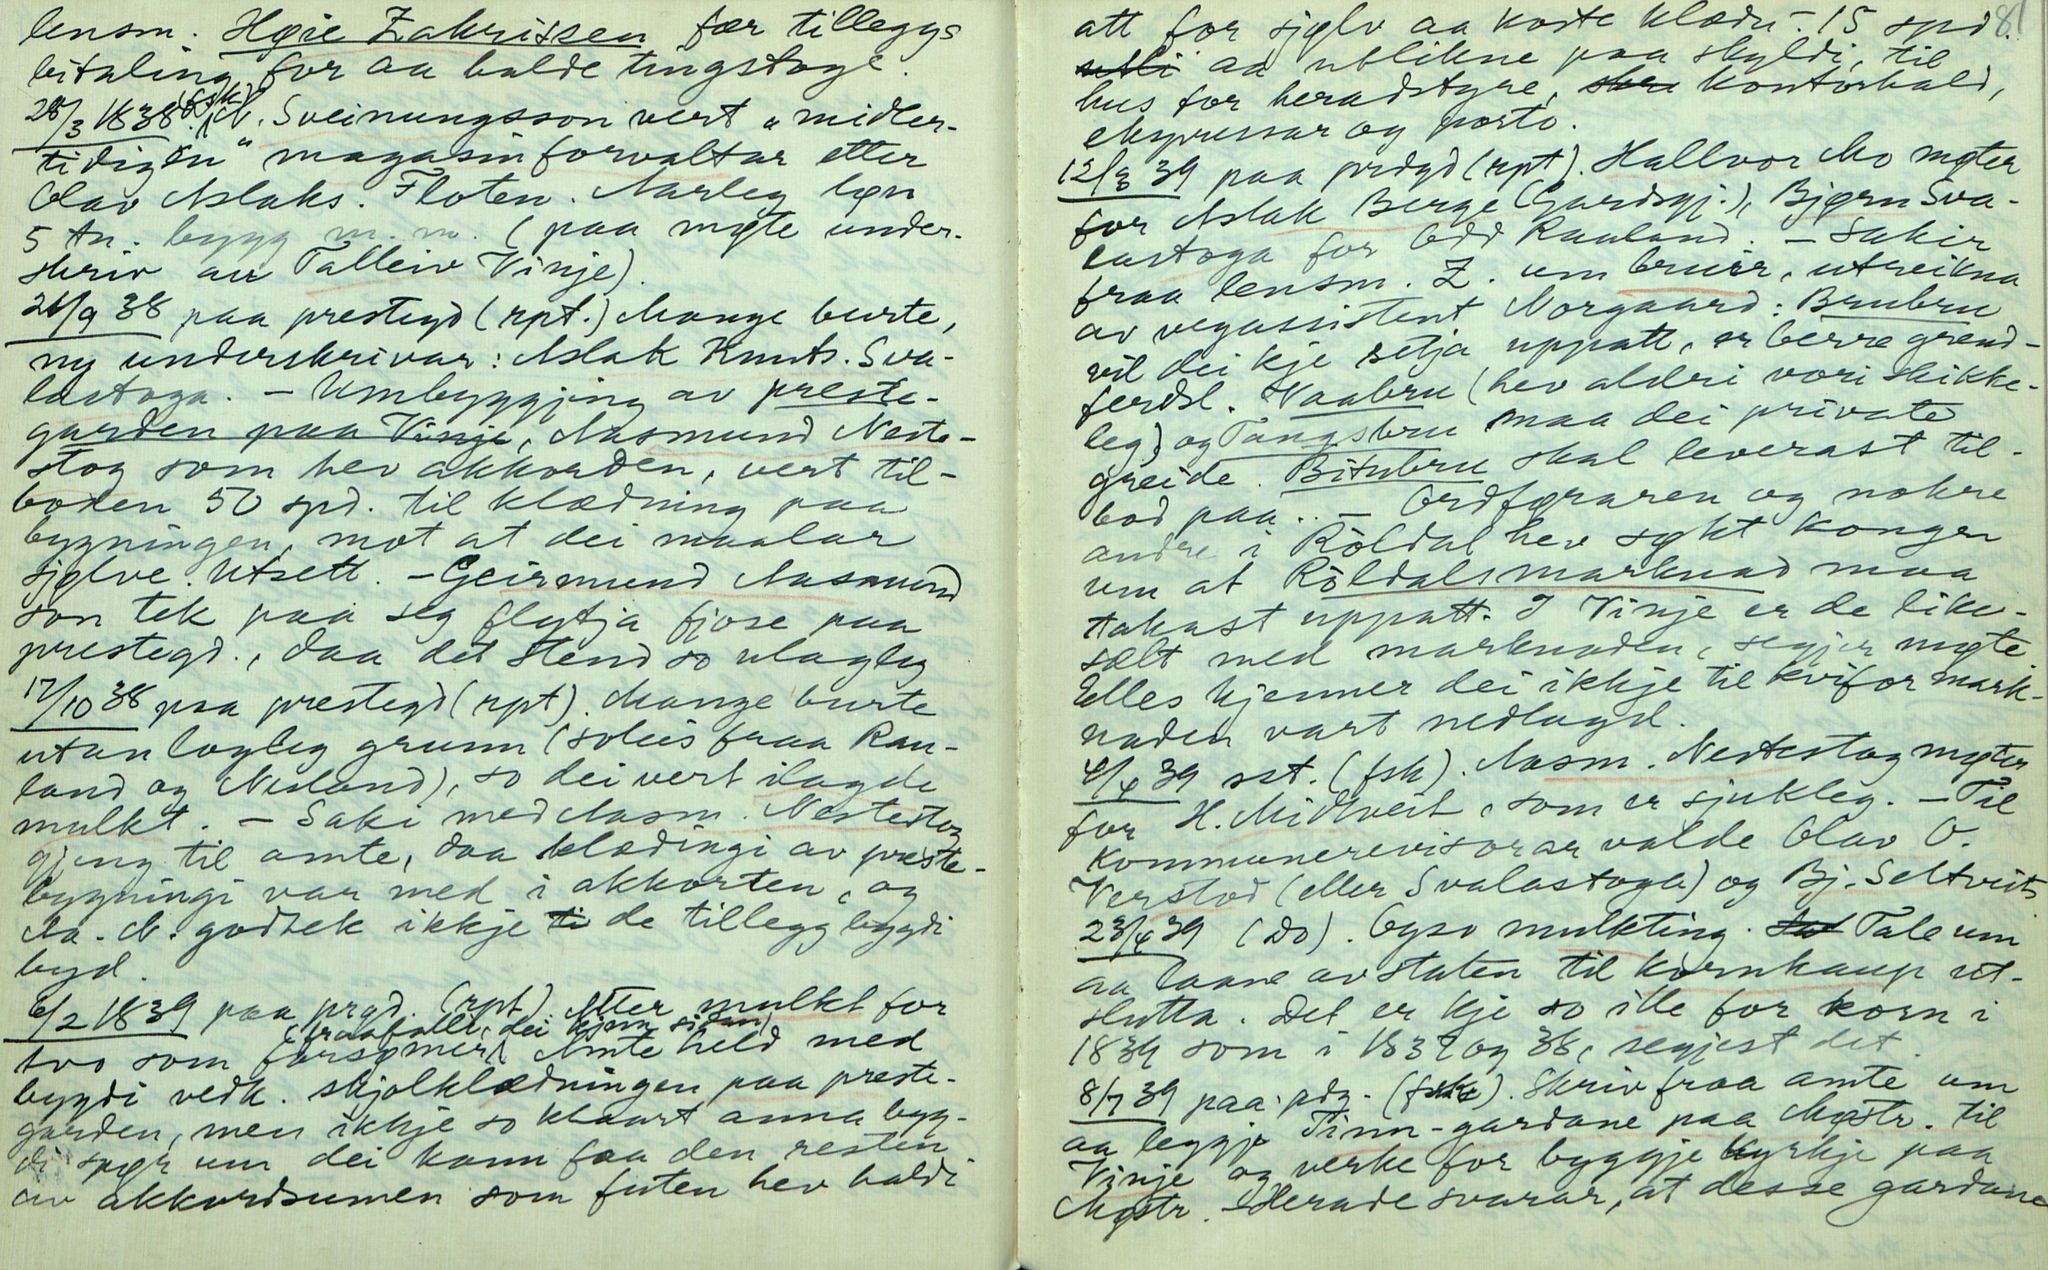 lensm. Høie Zakrissen fær tilleggs
bitaling for aa halde tingstoge.
28/3 1838 (fsk). N. Sveinungsson vert "midler-
tidigen" magasinforvaltar etter
Olav Aslaks. Floten. Aarleg løn
5 tn. bygg m.m. (paa møte under-
skriv au Talleiv Vinje).
26/9 38 paa prestegd (rpt.) Mange burte,
ny underskrivar: Aslak Knuts. Sva-
lastoga. – Umbyggjing av preste-
garden paa Vinje, Aasmund Neste-
stog som hev akkorden, vert til-
boden 50 spd. til klædning paa
bygningen, mot at dei maalar
sjølve. Utsett. – Geirmund Aasmund
son tek paa seg flytja fjose paa
prestegd., daa det stend so ulagleg
17/10 38 paa prestegd (rpt). Mange burte
utan logleg grunn (soleis fraa Rau-
land og Nesland), so dei vert ilagde
mulkt. – Saki med Aasm. Nestestog
gjeng til amte, daa klædingi av preste-
bygningi var med i akkorten, og
Aa. N. godtek ikkje ti de tillegg bygdi
byd.
6/2 1839 paa prgd. (rpt). Etter mulkt for
(fraafalli, dei kjem sidan)
tvo som forsømer. Amte held med
bygdi vedk. skjolklædningen paa preste-
garden, men ikkje so klaart anna byg-
di spør um dei kann faa den resten
av akkordsumen som futen hev haldi
81
att for sjølv aa koste klædn. – 15 spd.
utli aa utlikne paa skyldi, til
hus for heradstyre, skr kontorhald,
ekspressar og porto.
12/3 39 paa prdgd (rpt). Hallvor Mo møter
for Aslak Berge (Gardsgj.), Bjørn Sva-
lastoga for Odd Rauland. – Sakir
fraa lensm. Z. um bruir, utreikna
av vegassistent Norgaard: Brubru
vil dei kje setja uppatt, er berre grend-
ferdsl. Vaabru (hev aldri vori skikke-
leg) og Tangsbru maa dei private
greide. Bitubru skal leverast til-
bod paa. – Ordføraren og nokre
andre i Röldal hev søkt kongen
um at Röldalsmarknad maa
takast uppatt. I Vinje er de like-
sælt med marknaden, segjer møte.
Elles kjenner dei ikkje til kvifor mark-
naden vart nedlagd.
4/4 39 sst. (fsk). Aasm. Nestestog møter
for H. Midtveit, som er sjukleg. – Til
kommunerevisorar valde Olav O.
Verstod (eller Svalastoga) og Bj. Seltveit.
23/4 39 (Do). Ogso mulkting. Tale um
aa laane av staten til kornkaup ut-
slutta. Det er kje so ille for korn i
1839 som i 1837 og 38, segjest det.
8/7 39 paa pdg. (fsk). Skriv fraa amte um
aa leggje Tinn-gardane paa Møstr. til
Vinje og verke for byggje kyrkje paa
Møstr. – Herade svarar, at desse gardane